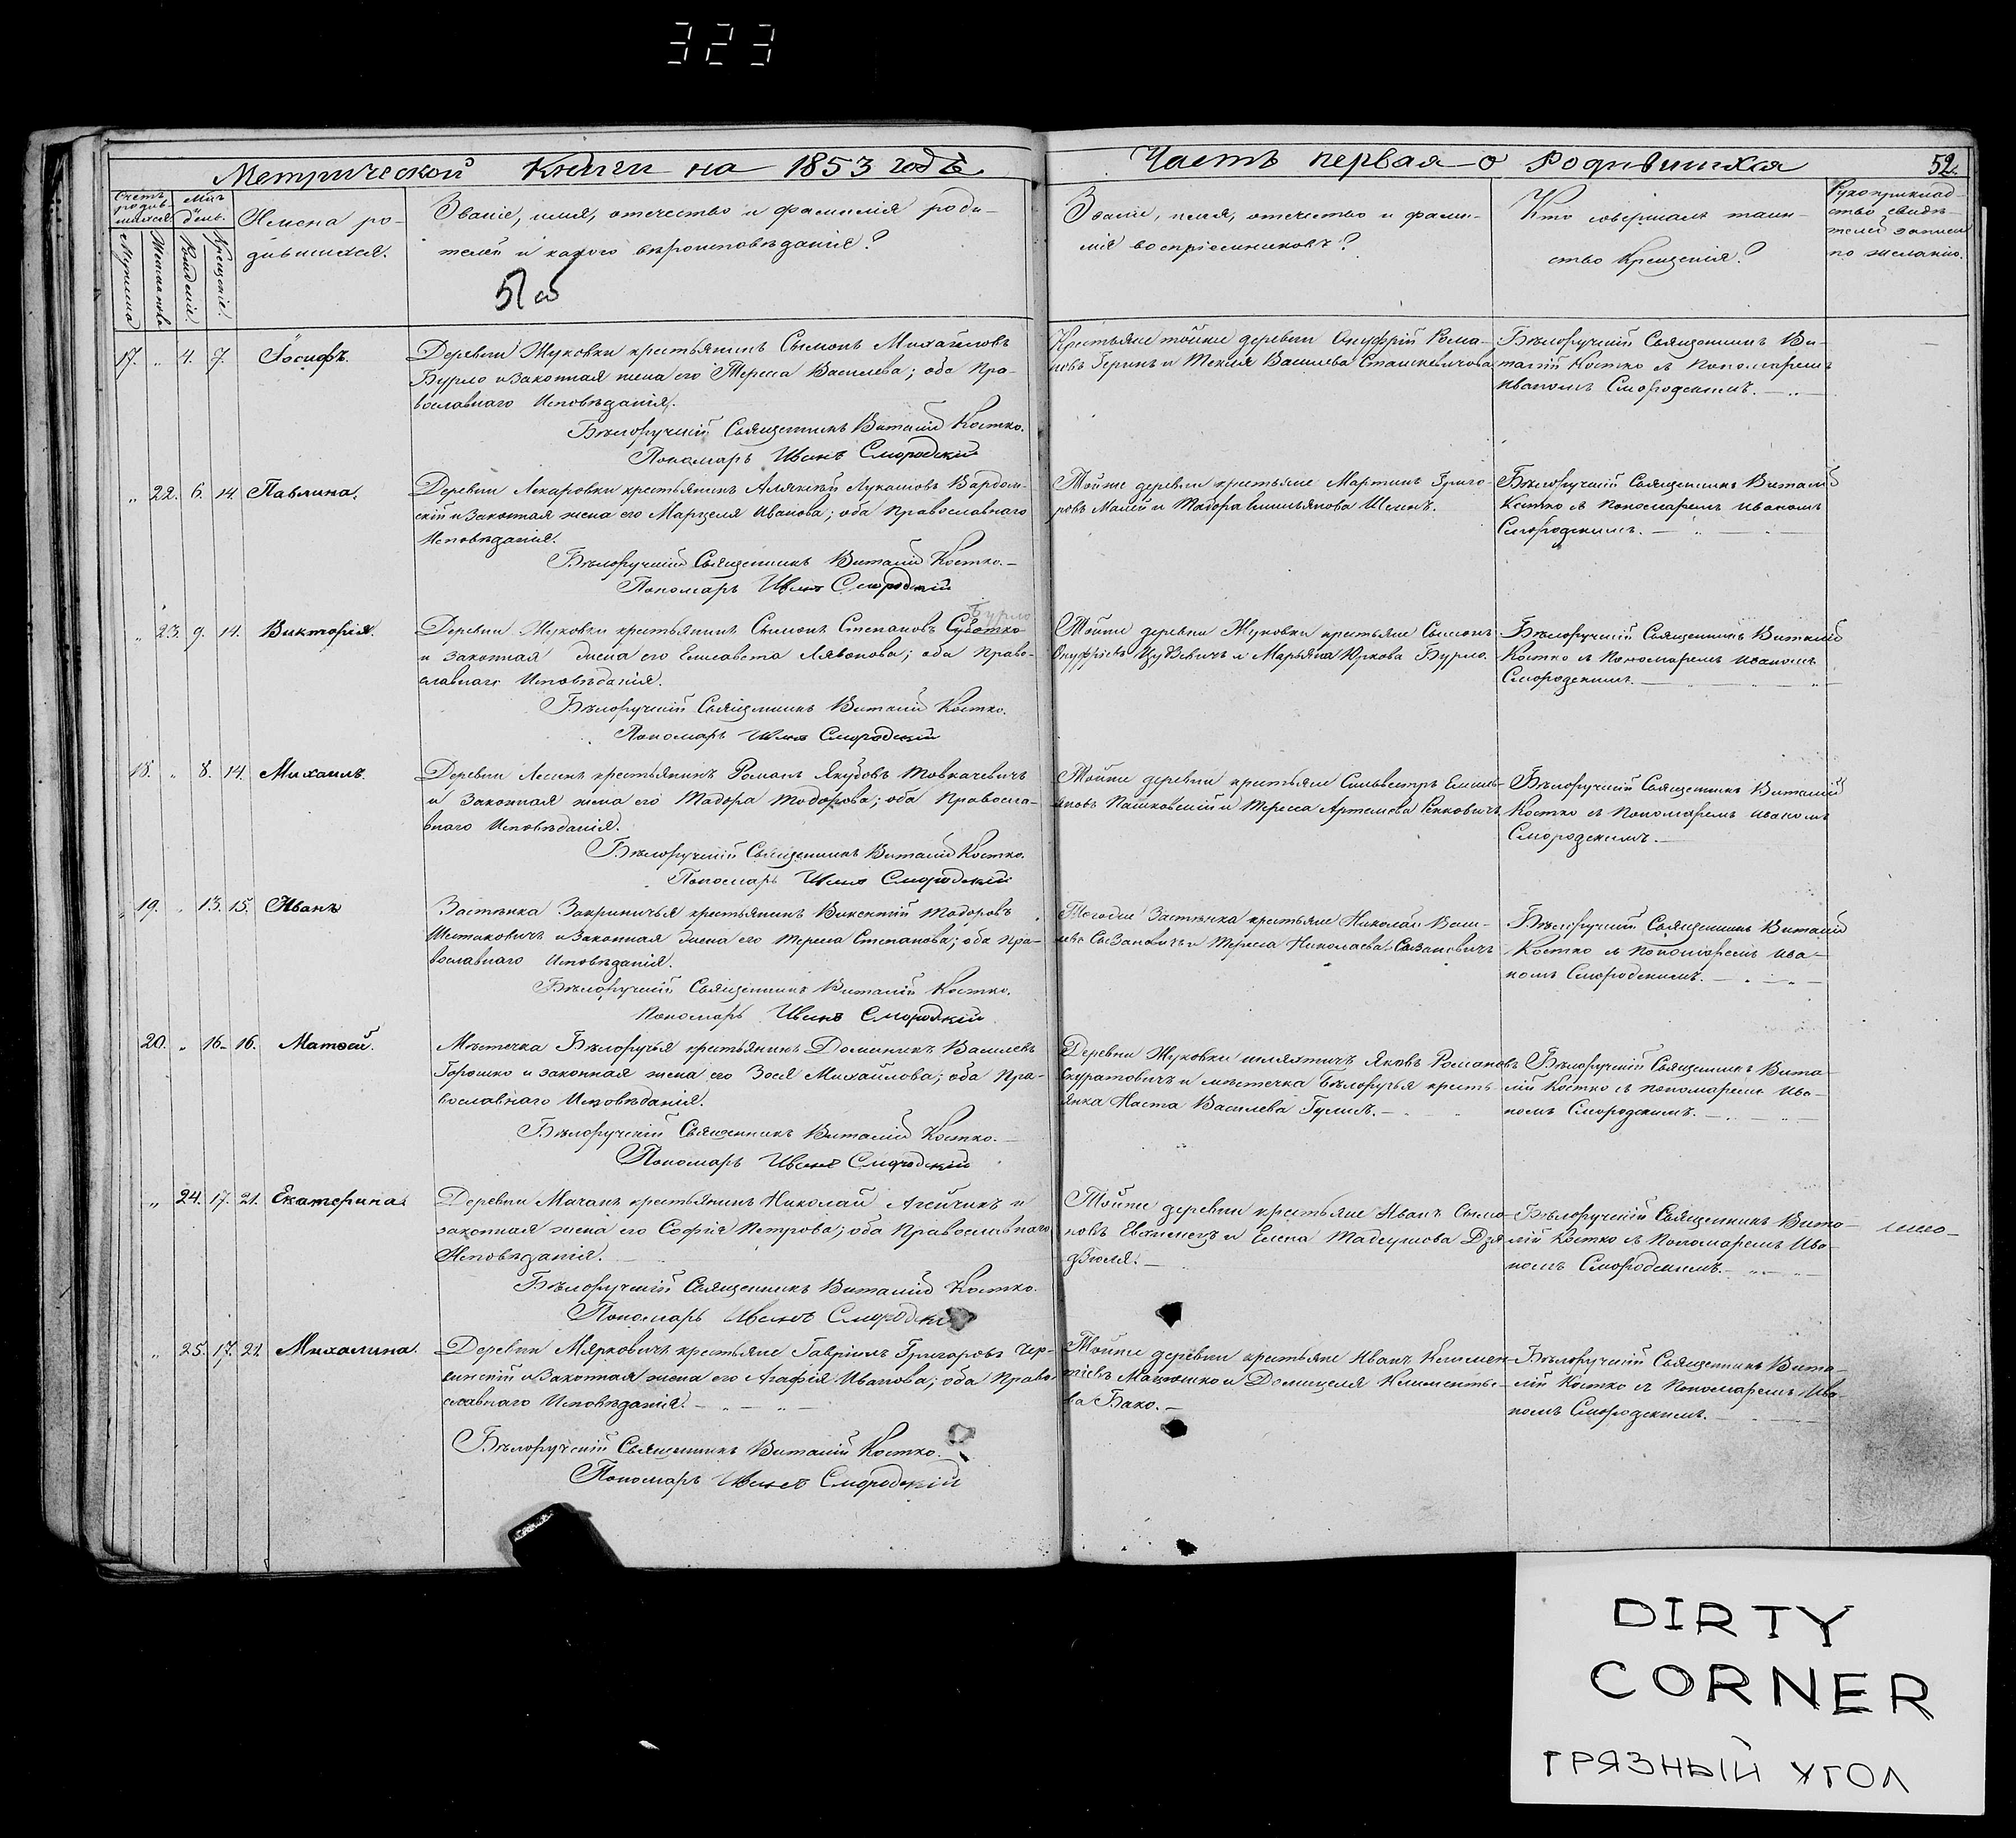 323
Метрической Книги на 1853 годъ
Часть первая о Родившихся
52.
Счетъ родив-шихся.
Мцъ и день.
Мужеска
Женска
Рожденіе.
Крещеніе.
Имена ро-
дившихся.
Званіе, имя, отечество и фамилія роди-
телей и какого вѣроисповѣданія?
51 об
Званіе, имя, отечество и фами-
лія воспріемниковъ?
Кто совершалъ таин-
ство Крещенія?
Рукоприклад-
ство свидѣ-
телей записи
по желанію.
17. „ 4. 7. Іосифъ.
Деревни Жуковки крестьянинъ Сымонъ Михайловъ
Бурло и Законная жена его Тереса Василева; оба Пра-
вославнаго Исповѣданія.
Бѣлоручскій Священникъ Виталій Костко.
Пономарь Иванъ Смородскій
Крестьяне тойже деревни Онуфрій Рома-
новъ Геринъ и Текля Василева Сташкевичова
Бѣлоручскій Священникъ Ви-
талій Костко съ Пономаремъ
Иваномъ Смородскимъ.
„ 22. 6. 14. Павлина.
Деревни Лекаровки крестьянинъ Аляксѣй Лукашовъ Вардом-
скій и Законная жена его Марцеля Иванова; оба Православнаго
Исповѣданія.
Бѣлоручскій Священникъ Виталій Костко.
Пономарь Иванъ Смородскій
Тойже деревни крестьяне Мартинъ Григо-
ровъ Малей и Тадора Емильянова
Бѣлоручскій Священникъ Виталій
Костко съ Пономаремъ Иваномъ
Смородскимъ.
„ 23. 9. 14. Викторія.
Бурло
Деревни Жуковки крестьянинъ Сымонъ Степановъ Суботко
и Законная жена его Елисавета Лявонова; оба Право-
славнаго Исповѣданія.
Бѣлоручскій Священникъ Виталій Костко.
Пономарь Иванъ Смородскій
Тойже деревни Жуковки крестьяне Сымонъ
Онуфріевъ и Марьяна Юркова Бурло.
Бѣлоручскій Священникъ Виталій
Костко съ Пономаремъ Иваномъ
Смородскимъ.
18. „ 8. 14. Михаилъ.
Деревни Лесинъ крестьянинъ Романъ Якубовъ Товкачевичъ
и Законная жена его Тадора Тодорова; оба Правосла-
внаго Исповѣданія.
Бѣлоручскій Священникъ Виталій Костко.
Пономарь Иванъ Смородскій
Тойже деревни крестьяне Сильвестръ Емиль-
яновъ Пашковскій и Тереса Артемова Сенковичъ
Бѣлоручскій Священникъ Виталій
Костко съ Пономаремъ Иваномъ
Смородскимъ.
19. „ 13. 15. Иванъ
Застѣнка Закриничья крестьянинъ Викентій Тодоровъ
Шистаковичъ и Законная жена его Тереса Степанова; оба Пра-
вославнаго Исповѣданія.
Бѣлоручскій Священникъ Виталій Костко.
Пономарь Иванъ Смородскій
Тогоже Застѣнка крестьяне Николай
и Тереса Николаева
Бѣлоручскій Священникъ Виталій
Костко съ Пономаремъ Ива-
номъ Смородскимъ.
20. „ 16. 16. Матвѣй.
Мѣстечка Бѣлоручья крестьянинъ Доминикъ Василевъ
Горошко и законная жена его Зося Михайлова; оба Пра-
вославнаго Исповѣданія.
Бѣлоручскій Священникъ Виталій Костко.
Пономарь Иванъ Смородскій
Деревни Жуковки шляхтичъ Яковъ Романовъ
Скуратовичъ и мѣстечка Бѣлоручья кресть-
янка Наста Василева
Бѣлоручскій Священникъ Вита-
лій Костко съ Пономаремъ Ива-
номъ Смородскимъ.
„ 24. 17. 21. Екатерина.
Деревни Мачанъ крестьянинъ Николай Агейчикъ и
законная жена его Софія Петрова; оба Православнаго
Исповѣданія.
Бѣлоручскій Священникъ Виталій Костко.
Пономарь Иванъ Смородскій
Тойже деревни крестьяне Иванъ Сымо-
новъ и Елена Тадеушова
Бѣлоручскій Священникъ Вита-
лій Костко съ Пономаремъ Ива-
номъ Смородскимъ.
„ 25. 17. 21. Михалина.
Деревни Мярковичъ крестьяне Гавріилъ Григоровъ
и Законная жена его Агафія Иванова; оба Право-
славнаго Исповѣданія.
Бѣлоручскій Священникъ Виталій Костко.
Пономарь Иванъ Смородскій
Тойже деревни крестьяне Иванъ Климен-
тіевъ Матюшко и Домицеля Клименть-
ва Бако.
Бѣлоручскій Священникъ Вита-
лій Костко съ Пономаремъ Ива-
номъ Смородскимъ.
DIRTY
CORNER
ГРЯЗНЫЙ УГОЛ